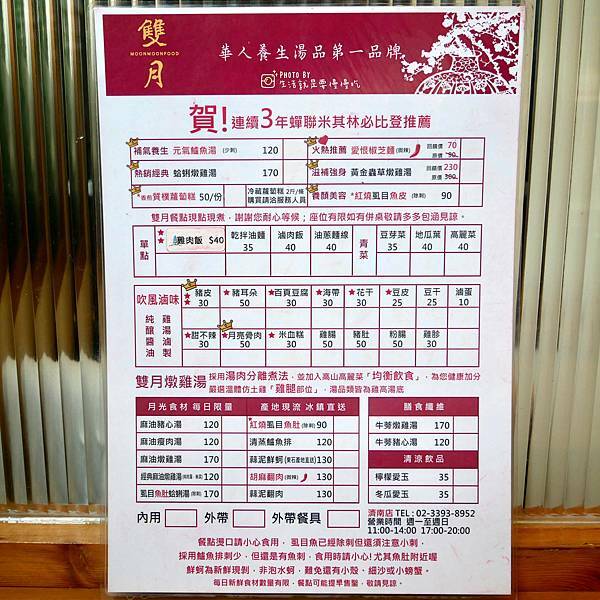 雙月
MOONMOONFOOD
華人養生湯品第一品牌
PHOTO BY
生活就是要慢慢吃
賀!連續3年蟬聯米其林必比登推薦
補氣養生 元氣鱸魚湯(少刺) 120
火熱推薦 愛恨椒芝麵(微辣) 回饋價 70 原價 90
熱銷經典 蛤蜊燉雞湯 170
滋補強身 黃金蟲草燉雞湯 回饋價 230 原價 300
香煎質樸蘿蔔糕 50/份
冷藏蘿蔔糕 2斤/條 購買請洽服務人員
養顏美容 *紅燒虱目魚皮(除刺) 90
雙月餐點現點現煮,謝謝您耐心等候;座位有限如有併桌敬請多多包涵見諒。
單點 雞肉飯 $40 乾拌油麵 35 滷肉飯 40 油蔥麵線 40 青菜 豆芽菜 35 地瓜葉 40 高麗菜 40
吹風滷味 純雞釀湯醬滷油製
★豬皮 30 ★豬耳朵 50 ★百頁豆腐 30 ★海帶 30 ★花干 30 ★豆皮 25 豆干 25 滷蛋 10
★甜不辣 30 ★月亮骨肉 50 ★米血糕 30 雞腸 50 豬肚 50 粉腸 50 雞胗 30
雙月燉雞湯 採用湯肉分離煮法,並加入高山高麗菜「均衡飲食」,為您健康加分
嚴選溫體仿土雞「雞腿部位」,湯品類皆為雞高湯底
月光食材 每日限量 產地現流 冰鎮直送 膳食纖維
麻油豬心湯 120 *紅燒虱目魚肚(除刺) 90 牛蒡燉雞湯 170
麻油瘦肉湯 120 清蒸鱸魚排 120 牛蒡豬心湯 120
麻油燉雞湯 170 蒜泥鮮蚵(東石產地直送) 130 清涼飲品
120 胡麻翻肉(微辣) 130 檸檬愛玉 35
虱目魚肚蛤蜊湯(除刺) 170 蒜泥翻肉 130 冬瓜愛玉 35
內用 外帶 外帶餐具
濟南店 TEL : 02-3393-8952
營業時間 週一至週日
11:00-14:00 17:00-20:00
餐點燙口請小心食用, 虱目魚已經除刺但還須注意小刺,
採用鱸魚排刺少,但還是有魚刺,食用時請小心!尤其魚肚附近喔
鮮蚵為新鮮現剝,非泡水蚵,難免還有小殼、細沙或小螃蟹。
每日新鮮食材數量有限,餐點可能提早售鑿,敬請見諒。